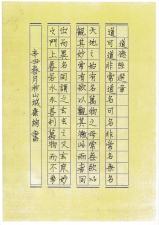 道德經選章
道可道非常道名可名非常名無名
天地之始有名萬物之母常無欲以
觀其妙常有欲以觀其徼此兩者同
出而異名同謂之玄玄之又玄眾妙
之門上善若水水善利萬物而不爭
辛丑春月於山城